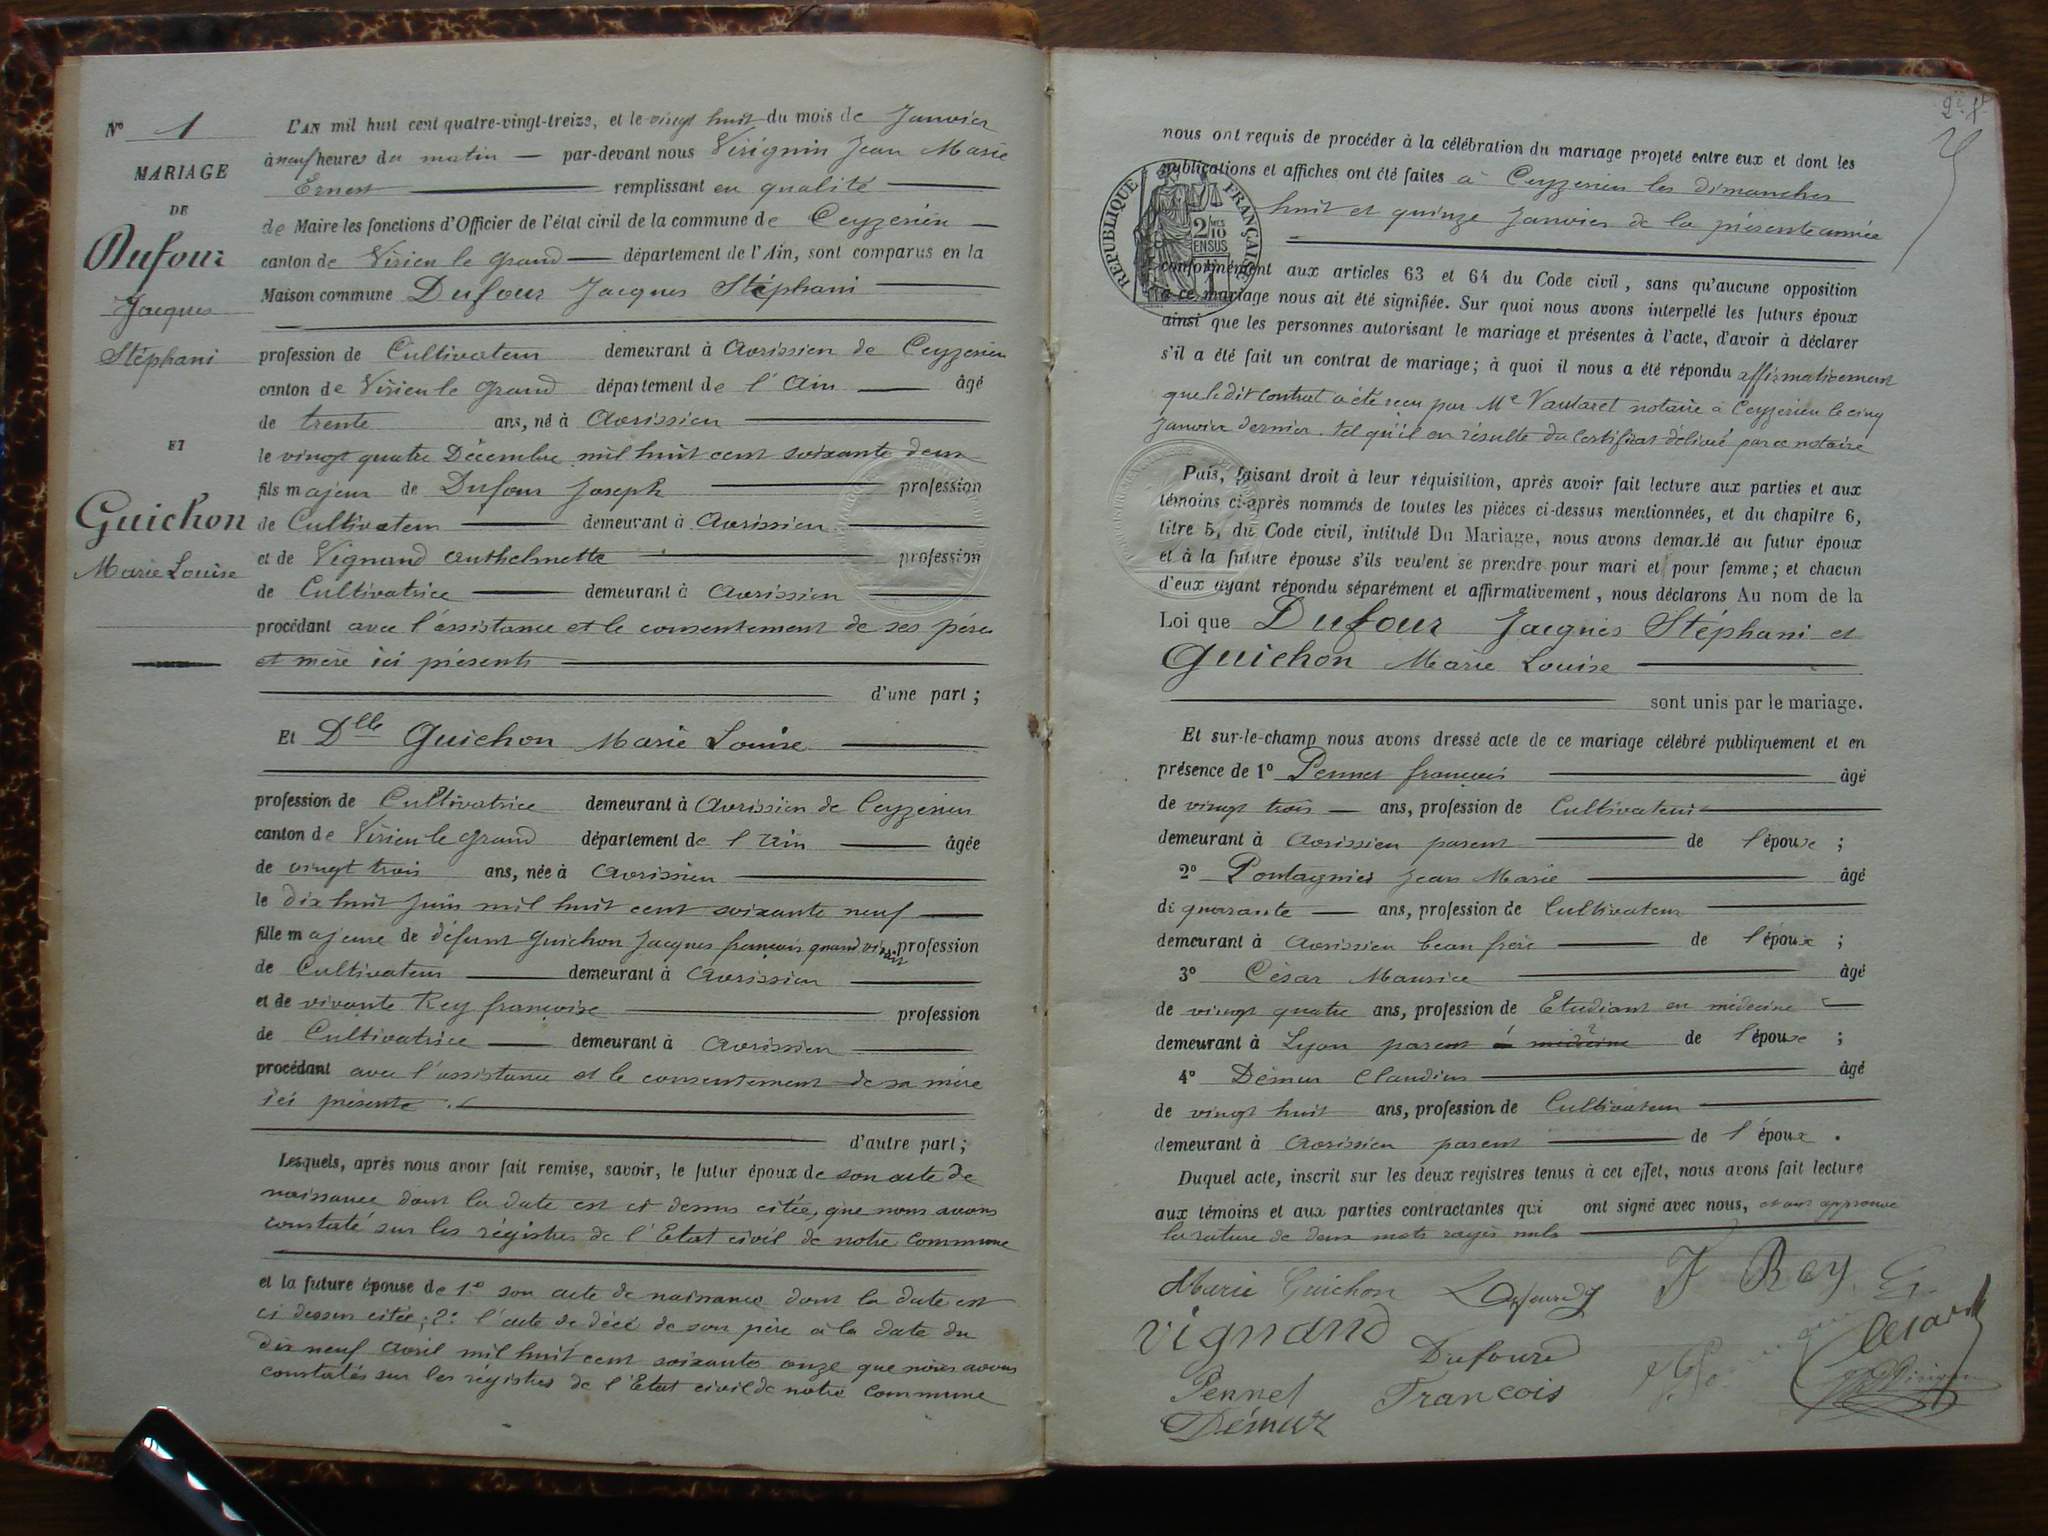 N° 1
MARIAGE
DE
Dufour
Jacques
Stéphani
ET
Guichon
Marie Louise
L'AN mil huit cent quatre-vingt-treize, et le vingt huit du mois de Janvier
à neuf heures du matin — par-devant nous Virignin Jean Marie
Ernest — remplissant en qualité
de Maire les fonctions d'Officier de l'état civil de la commune de Ceyzerieu
canton de Virieu le grand — département de l'Ain, sont comparus en la
Maison commune Dufour Jacques Stéphani
profession de Cultivateur demeurant à Avrissieu de Ceyzerieu
canton de Virieu le grand département de l'Ain — âgé
de trente ans, né à Avrissieu
le vingt quatre Décembre mil huit cent soixante deux
fils majeur de Dufour Joseph profession
de Cultivateur demeurant à Avrissieu
et de Vignand Anthelmette profession
de Cultivatrice demeurant à Avrissieu
procédant avec l'assistance et le consentement de ses père
et mère ici présents
d'une part ;
Et Dlle Guichon Marie Louise
profession de Cultivatrice demeurant à Avrissieu de Ceyzerieu
canton de Virieu le grand département de l'Ain — âgée
de vingt trois ans, née à Avrissieu
le dix huit Juin mil huit cent soixante neuf
fille majeure de défunt Guichon Jacques françois quand vivait profession
de Cultivateur demeurant à Avrissieu
et de vivante Rey françoise profession
de Cultivatrice demeurant à Avrissieu
procédant avec l'assistance et le consentement de sa mère
ici présente
d'autre part ;
Lesquels, après nous avoir fait remise, savoir, le futur époux de son acte de
naissance dont la date est ci dessus citée, que nous avons
constaté sur les régistres de l'Etat civil de notre commune
et la future épouse de 1° son acte de naissance dont la date est
ci dessus citée ; 2° l'acte de décé de son père à la date du
dix neuf avril mil huit cent soixante onze que nous avons
constatés sur les régistres de l'Etat civil de notre commune
nous ont requis de procéder à la célébration du mariage projeté entre eux et dont les
publications et affiches ont été faites à Ceyzerieu les dimanches
huit et quinze Janvier de la présente année
RÉPUBLIQUE FRANÇAISE
2/10 MES
EN SUS
conformément aux articles 63 et 64 du Code civil, sans qu'aucune opposition
à ce mariage nous ait été signifiée. Sur quoi nous avons interpellé les futurs époux
ainsi que les personnes autorisant le mariage et présentes à l'acte, d'avoir à déclarer
s'il a été fait un contrat de mariage ; à quoi il nous a été répondu affirmativement
que le dit contrat a été reçu par Me Vautaret notaire à Ceyzerieu le cinq
Janvier dernier tel qu'il en résulte du certificat délivré par ce notaire
Puis, faisant droit à leur réquisition, après avoir fait lecture aux parties et aux
témoins ci-après nommés de toutes les pièces ci-dessus mentionnées, et du chapitre 6,
titre 5, du Code civil, intitulé Du Mariage, nous avons demandé au futur époux
et à la future épouse s'ils veulent se prendre pour mari et pour femme ; et chacun
d'eux ayant répondu séparément et affirmativement, nous déclarons Au nom de la
Loi que Dufour Jacques Stéphani et
Guichon Marie Louise
sont unis par le mariage.
Et sur-le-champ nous avons dressé acte de ce mariage célébré publiquement et en
présence de 1° Pennet françois âgé
de vingt trois — ans, profession de Cultivateur
demeurant à Avrissieu parent de l'épouse ;
2° Pontagnier Jean Marie âgé
de quarante — ans, profession de Cultivateur
demeurant à Avrissieu beau frère de l'époux ;
3° César Maurice âgé
de vingt quatre ans, profession de Etudiant en médecine
demeurant à Lyon parent à médecine de l'épouse ;
4° Démur Claudius âgé
de vingt huit ans, profession de Cultivateur
demeurant à Avrissieu parent de l'époux .
Duquel acte, inscrit sur les deux registres tenus à cet effet, nous avons fait lecture
aux témoins et aux parties contractantes qui ont signé avec nous, et ont approuvé
la rature de deux mots rayés nuls
Marie Guichon Dufour J F Rey
Vignand Dufour César
Pennet François
Démur